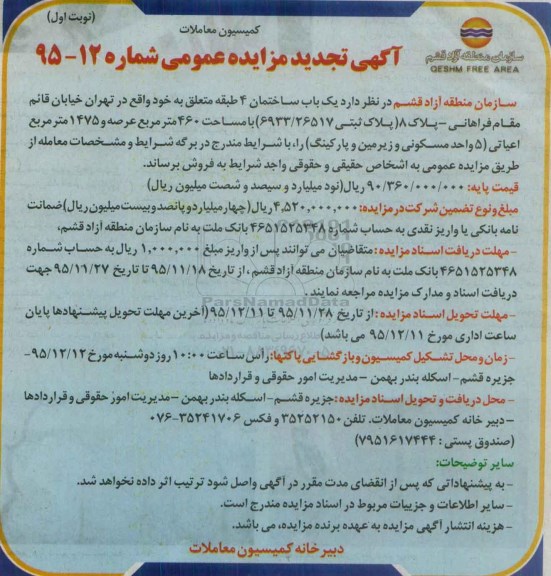 (نوبت اول)
کمیسیون معاملات
سازمان منطقه آزاد قشم
QESHM FREE AREA
آگهی تجدید مزایده عمومی شماره ۱۲-۹۵
سازمان منطقه آزاد قشم در نظر دارد یک باب ساختمان ۴ طبقه متعلق به خود واقع در تهران خیابان قائم
مقام فراهانی - پلاک ۸ (پلاک ثبتی ۶۹۳۳/۲۶۵۱۷) با مساحت ۴۶۰ متر مربع عرصه و ۱۴۷۵ متر مربع
اعیانی (۵ واحد مسکونی و زیرمین و پارکینگ) را، با شرایط مندرج در برگه شرایط و مشخصات معامله از
طریق مزایده عمومی به اشخاص حقیقی و حقوقی واجد شرایط به فروش برساند.
قیمت پایه: ۹۰/۳۶۰/۰۰۰/۰۰۰ ریال (نود میلیارد و سیصد و شصت میلیون ریال)
مبلغ و نوع تضمین شرکت در مزایده: ۴,۵۲۰,۰۰۰,۰۰۰ ریال (چهار میلیارد و پانصد و بیست میلیون ریال) ضمانت
نامه بانکی یا واریز نقدی به حساب شماره ۴۶۵۱۵۲۵۳۴۸ بانک ملت به نام سازمان منطقه آزاد قشم،
- مهلت دریافت اسناد مزایده: متقاضیان می توانند پس از واریز مبلغ ۱,۰۰۰,۰۰۰ ریال به حساب شماره
۴۶۵۱۵۲۵۳۴۸ بانک ملت به نام سازمان منطقه آزاد قشم، از تاریخ ۹۵/۱۱/۱۸ تا تاریخ ۹۵/۱۱/۲۷ جهت
دریافت اسناد و مدارک مزایده مراجعه نمایند.
ParsNamadData
- مهلت تحویل اسناد مزایده: از تاریخ ۹۵/۱۱/۲۸ تا ۹۵/۱۲/۱۱ (آخرین مهلت تحویل پیشنهادها پایان
ساعت اداری مورخ ۹۵/۱۲/۱۱ می باشد)
- زمان و محل تشکیل کمیسیون و بازگشایی پاکتها: رأس ساعت ۱۰:۰۰ روز دوشنبه مورخ ۹۵/۱۲/۱۲-
جزیره قشم- اسکله بندر بهمن - مدیریت امور حقوقی و قراردادها
- محل دریافت و تحویل اسناد مزایده: جزیره قشم- اسکله بندر بهمن - مدیریت امور حقوقی و قراردادها
- دبیر خانه کمیسیون معاملات. تلفن ۳۵۲۵۲۱۵۰ و فکس ۳۵۲۴۱۷۰۶-۰۷۶
(صندوق پستی: ۷۹۵۱۶۱۷۴۴۴)
سایر توضیحات:
- به پیشنهاداتی که پس از انقضای مدت مقرر در آگهی واصل شود ترتیب اثر داده نخواهد شد.
- سایر اطلاعات و جزییات مربوط در اسناد مزایده مندرج است.
- هزینه انتشار آگهی مزایده به عهده برنده مزایده، می باشد.
دبیر خانه کمیسیون معاملات